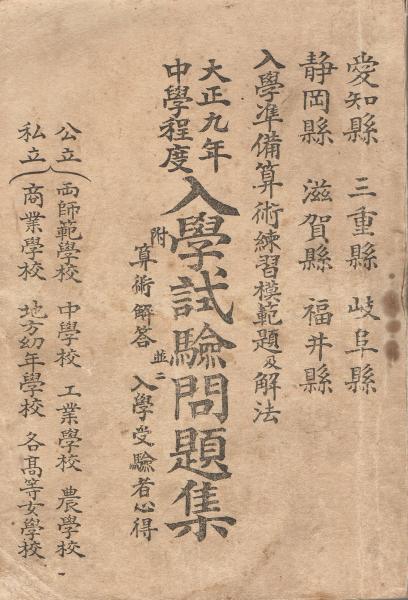 愛知縣 三重縣 岐阜縣
静岡縣 滋賀縣 福井縣
入學準備算術練習模範題及解法
大正九年
中學程度
入學試驗問題集
附
算術解答
並ニ
入學受驗者心得
公立
私立
両師範學校 中學校 工業學校 農學校
商業學校 地方幼年學校 各高等女學校